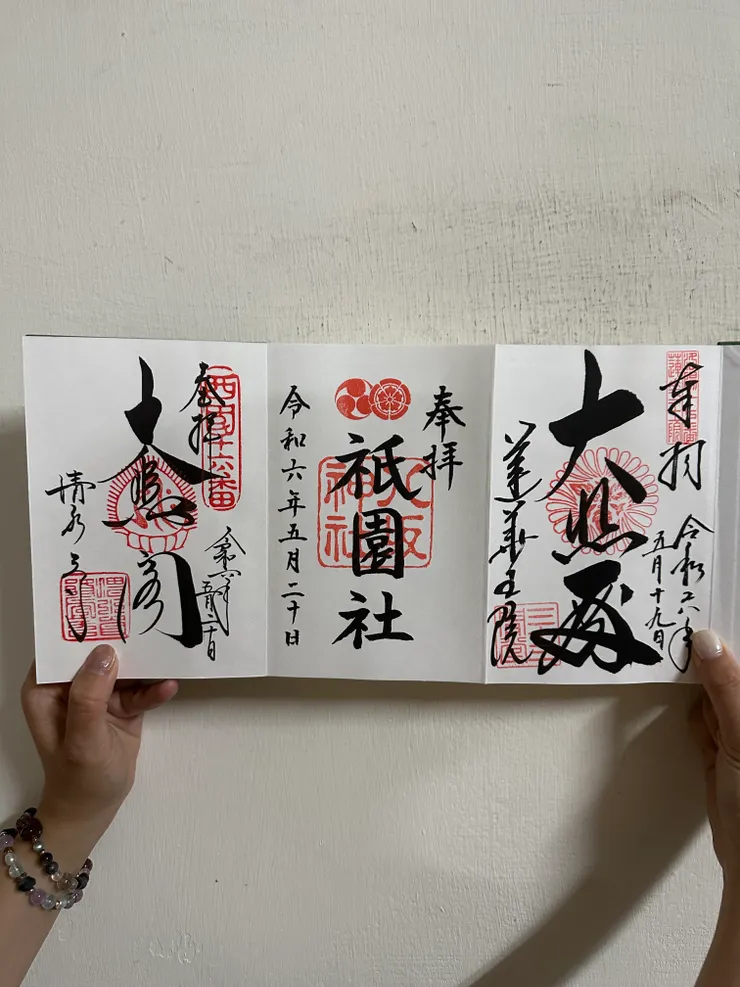 奉拝
令和六年
五月十九日
大悲殿
蓮華王院
奉拝
祇園社
八坂神社
令和六年五月二十日
西国十六番
奉拝
令和六年
五月二十日
大悲閣
清水寺